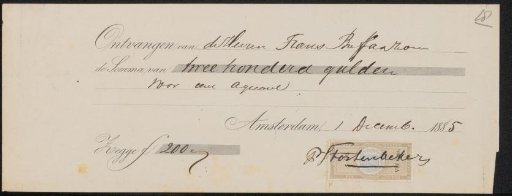 Ontvangen van de Heeren Frans Buffa & Zoon
de Somma van twee honderd gulden
voor een aquarel
Amsterdam, 1 Decemb. 1885
Zegge f 200,–
P. Stortenbeker